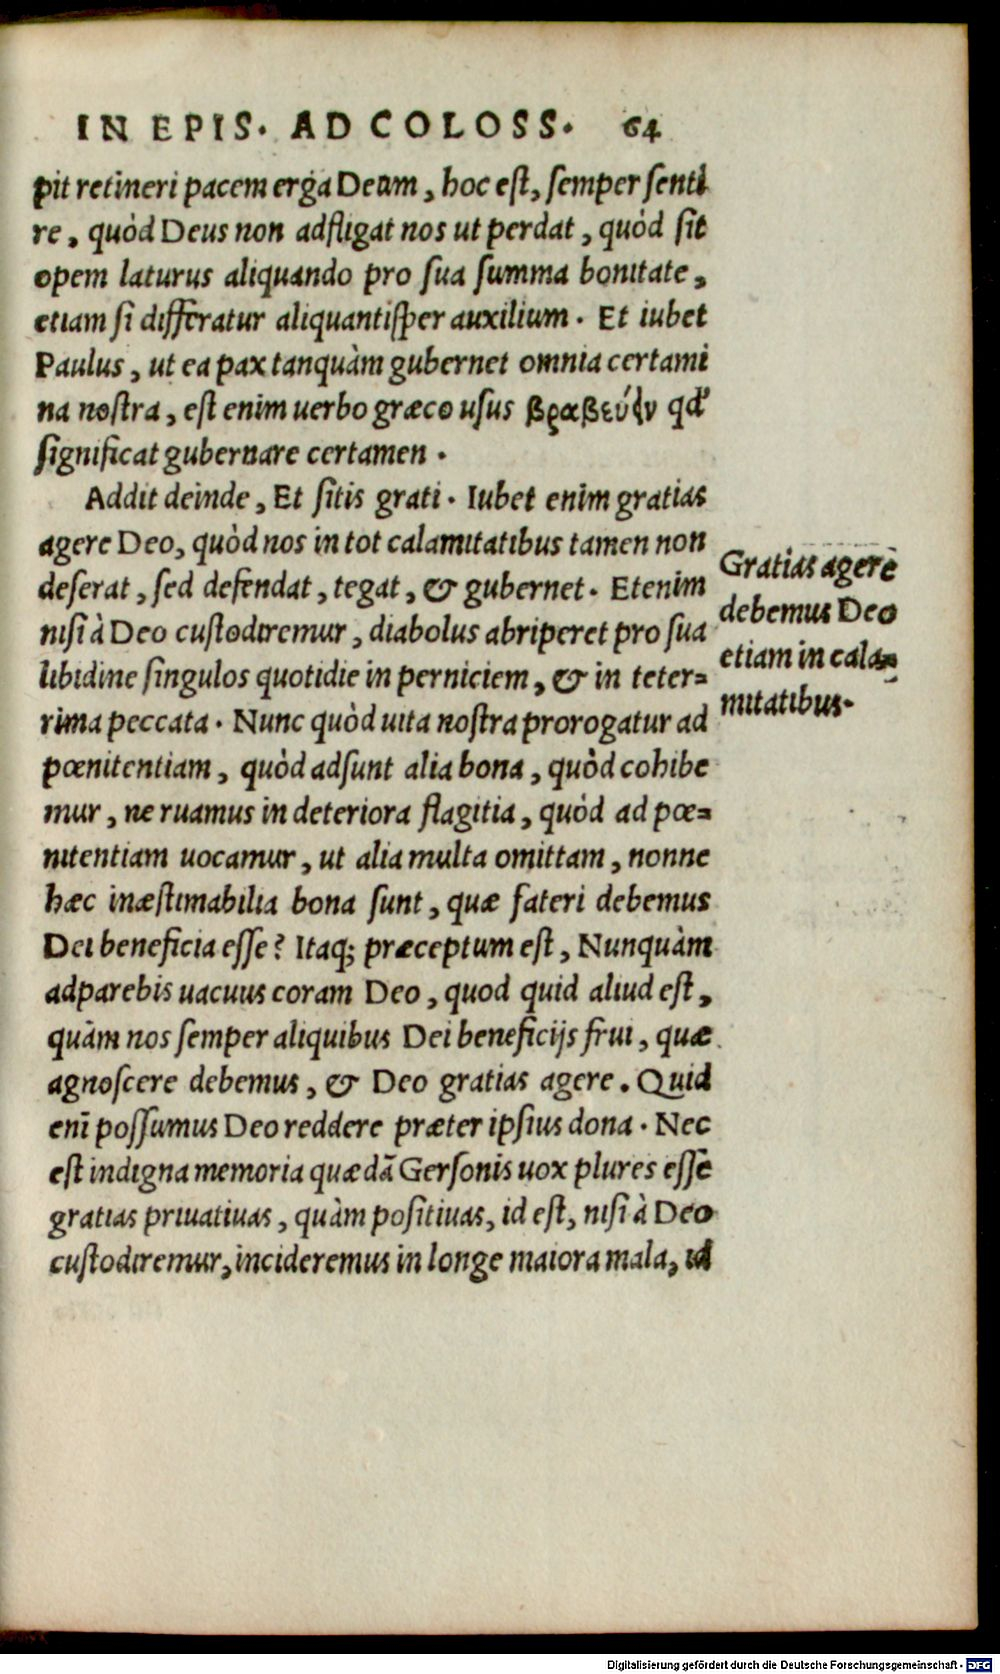 IN EPIS. AD COLOSS. 64
pit retineri pacem erga Deum, hoc est, semper senti
re, quòd Deus non adfligat nos ut perdat, quòd sit
opem laturus aliquando pro sua summa bonitate,
etiam si differatur aliquantisper auxilium. Et iubet
Paulus, ut ea pax tanquàm gubernet omnia certami
na nostra, est enim uerbo græco usus βραβεύειν qd'
significat gubernare certamen.
Addit deinde, Et sitis grati. Iubet enim gratias
agere Deo, quòd nos in tot calamitatibus tamen non
deserat, sed defendat, tegat, & gubernet. Etenim
nisi à Deo custodiremur, diabolus abriperet pro sua
libidine singulos quotidie in perniciem, & in teter=
rima peccata. Nunc quòd uita nostra prorogatur ad
pœnitentiam, quòd adsunt alia bona, quòd cohibe
mur, ne ruamus in deteriora flagitia, quòd ad pœ=
nitentiam uocamur, ut alia multa omittam, nonne
hæc inæstimabilia bona sunt, quæ fateri debemus
Dei beneficia esse? Itaq; præceptum est, Nunquàm
adparebis uacuus coram Deo, quod quid aliud est,
quàm nos semper aliquibus Dei beneficijs frui, quæ
agnoscere debemus, & Deo gratias agere. Quid
enī possumus Deo reddere præter ipsius dona. Nec
est indigna memoria quædā Gersonis uox plures esse
gratias priuatiuas, quàm positiuas, id est, nisi à Deo
custodiremur, incideremus in longe maiora mala, id
Gratias agere
debemus Deo
etiam in cala=
mitatibus.
Digitalisierung gefördert durch die Deutsche Forschungsgemeinschaft - DFG